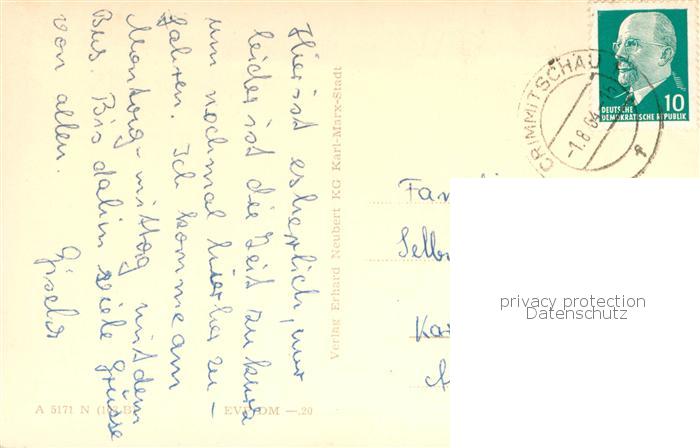 Hier ist es herrlich, nur
leider ist die Zeit zu kurz
um nochmal hierher zu-
fahren. Ich komme am
Montag-mittag mit dem
Bus. Bis dahin viele Grüsse
von allen.
Gisela
Verlag Erhard Neubert KG Karl-Marx-Stadt
A 5171 N
EVP DM —.20
CRIMMITSCHAU
-1.8.64
DEUTSCHE
DEMOKRATISCHE REPUBLIK
10
Fam
Selb
Ka
privacy protection
Datenschutz